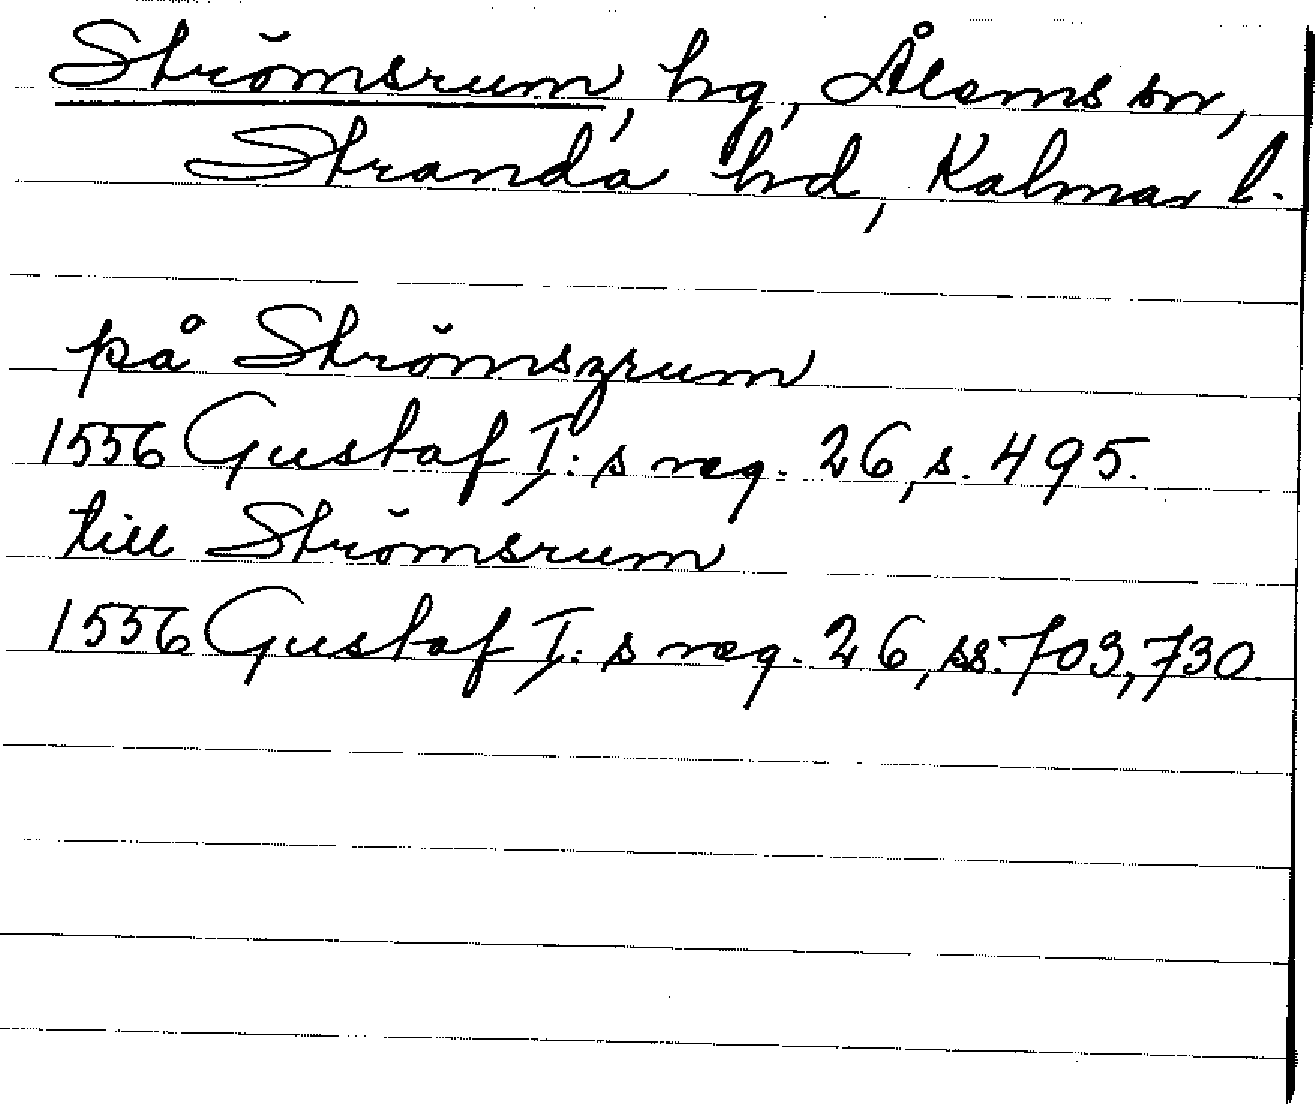 Strömsrum, hg, Ålems sn,
Stranda hd, Kalmar l.
på Strömszrum
1556 Gustaf I:s reg. 26, s. 495.
till Strömsrum
1556 Gustaf I:s reg. 26, ss. 703, 730